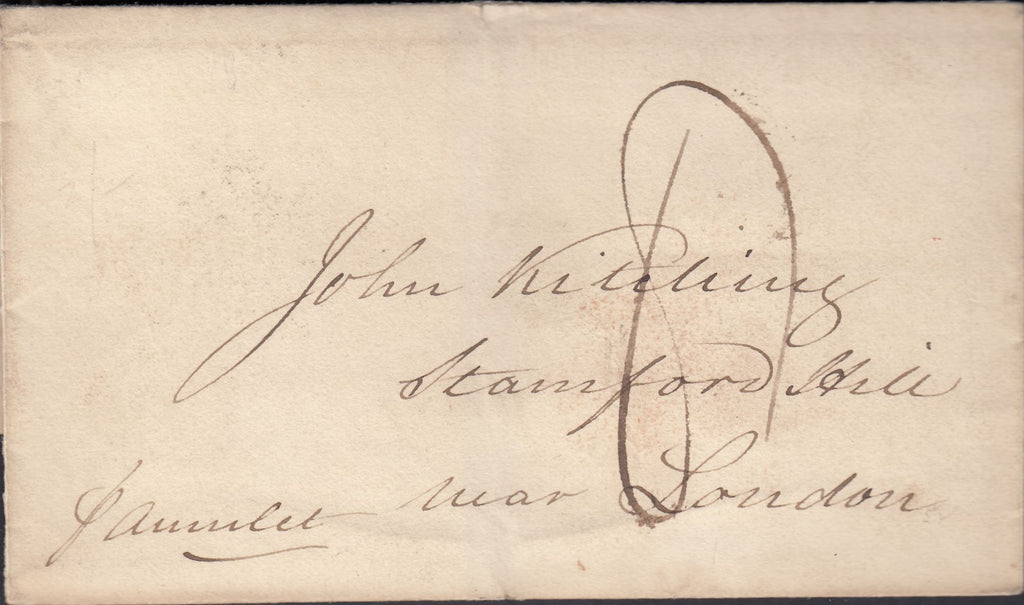 John Kitching
Stamford Hill
near London
8